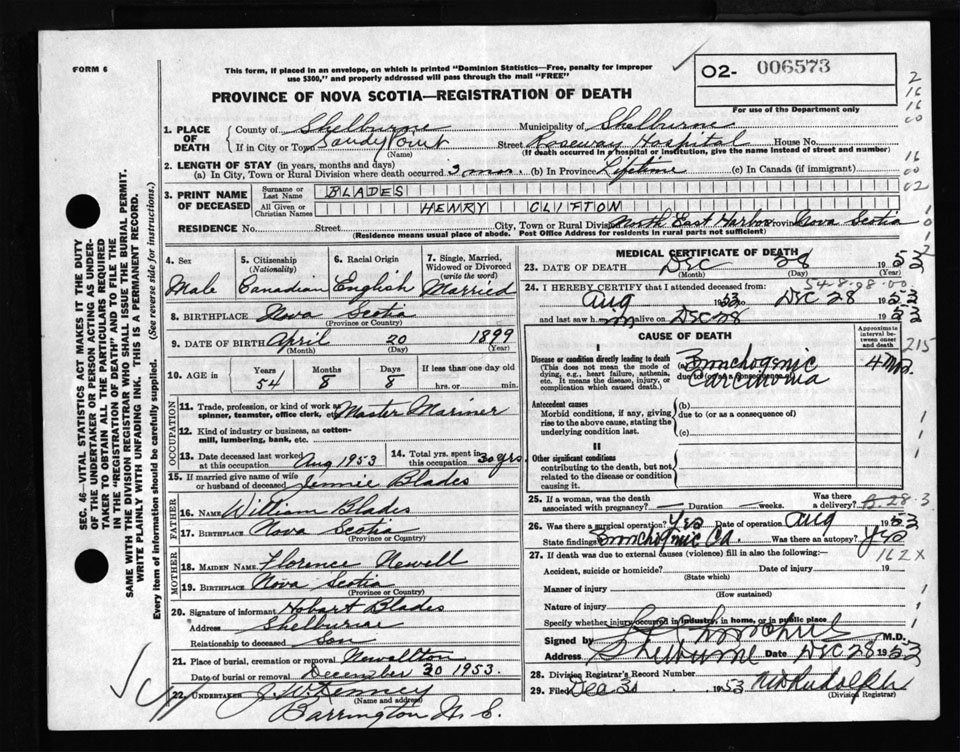 FORM 6
This form, if placed in an envelope, on which is printed "Dominion Statistics—Free, penalty for improper
use $300," and properly addressed will pass through the mail "FREE"
O2- 006573
For use of the Department only
PROVINCE OF NOVA SCOTIA—REGISTRATION OF DEATH
2
16
16
00
16
00
02
SEC. 46—VITAL STATISTICS ACT MAKES IT THE DUTY
OF THE UNDERTAKER OR PERSON ACTING AS UNDER-
TAKER TO OBTAIN ALL THE PARTICULARS REQUIRED
IN THE "REGISTRATION OF DEATH" AND TO FILE THE
SAME WITH THE DIVISION REGISTRAR WHO SHALL ISSUE THE BURIAL PERMIT.
WRITE PLAINLY WITH UNFADING INK. THIS IS A PERMANENT RECORD.
Every item of information should be carefully supplied. (See reverse side for instructions.)
1. PLACE OF DEATH
County of Shelburne Municipality of Shelburne
If in City or Town Sandy Point Street Roseway Hospital House No.
(Name) (If death occurred in a hospital or institution, give the name instead of street and number)
2. LENGTH OF STAY (in years, months and days)
(a) In City, Town or Rural Division where death occurred 3 mos. (b) In Province Lifetime (c) In Canada (if immigrant)
3. PRINT NAME OF DECEASED
Surname or Last Name BLADES
All Given or Christian Names HENRY CLIFTON
RESIDENCE No. Street City, Town or Rural Division North East Harbor Province Nova Scotia
(Residence means usual place of abode. Post Office Address for residents in rural parts not sufficient)
4. Sex Male
5. Citizenship (Nationality) Canadian
6. Racial Origin English
7. Single, Married, Widowed or Divorced (write the word) Married
8. BIRTHPLACE Nova Scotia
(Province or Country)
9. DATE OF BIRTH April 20 1899
(Month) (Day) (Year)
10. AGE Years 54 Months 8 Days 8 If less than one day old
hrs. or min.
OCCUPATION
11. Trade, profession, or kind of work as spinner, teamster, office clerk, etc. Master Mariner
12. Kind of industry or business, as cotton-mill, lumbering, bank, etc.
13. Date deceased last worked at this occupation Aug 1953
14. Total yrs. spent in this occupation 30 yrs.
15. If married give name of wife or husband of deceased Jennie Blades
FATHER
16. Name William Blades
17. Birthplace Nova Scotia
(Province or Country)
MOTHER
18. Maiden Name Florence Newell
19. Birthplace Nova Scotia
(Province or Country)
20. Signature of informant Hobart Blades
Address Shelburne
Relationship to deceased Son
21. Place of burial, cremation or removal Newellton
Date of burial or removal December 30 1953.
22. Undertaker
(Name and address)
Barrington N. S.
MEDICAL CERTIFICATE OF DEATH
23. DATE OF DEATH Dec 28 1953
(Month) (Day) (Year)
54-8-08-00
24. I HEREBY CERTIFY that I attended deceased from:
Aug 1953 to Dec 28 1953
and last saw him alive on Dec 28 1953
CAUSE OF DEATH
Approximate interval between onset and death
I
Disease or condition directly leading to death
(This does not mean the mode of dying, e.g., heart failure, asthenia, etc. It means the disease, injury, or complication which caused death.)
(a) Bronchogenic Carcinoma
due to (or as a consequence of)
4 Mo.
215
Antecedent causes
Morbid conditions, if any, giving rise to the above cause, stating the underlying condition last.
(b)
due to (or as a consequence of)
(c)
II
Other significant conditions
contributing to the death, but not related to the disease or condition causing it.
25. If a woman, was the death associated with pregnancy? Duration weeks. Was there a delivery?
26. Was there a surgical operation? Yes Date of operation Aug 1953
State findings Bronchogenic Ca. Was there an autopsy? Yes
162X
27. If death was due to external causes (violence) fill in also the following:—
Accident, suicide or homicide? Date of injury 19
(State which)
Manner of injury
(How sustained)
Nature of injury
Specify whether injury occurred in industry, in home, or in public place
Signed by M.D.
Address Shelburne Date Dec 28 1953
28. Division Registrar's Record Number
29. Filed Dec 30 1953
(Division Registrar)